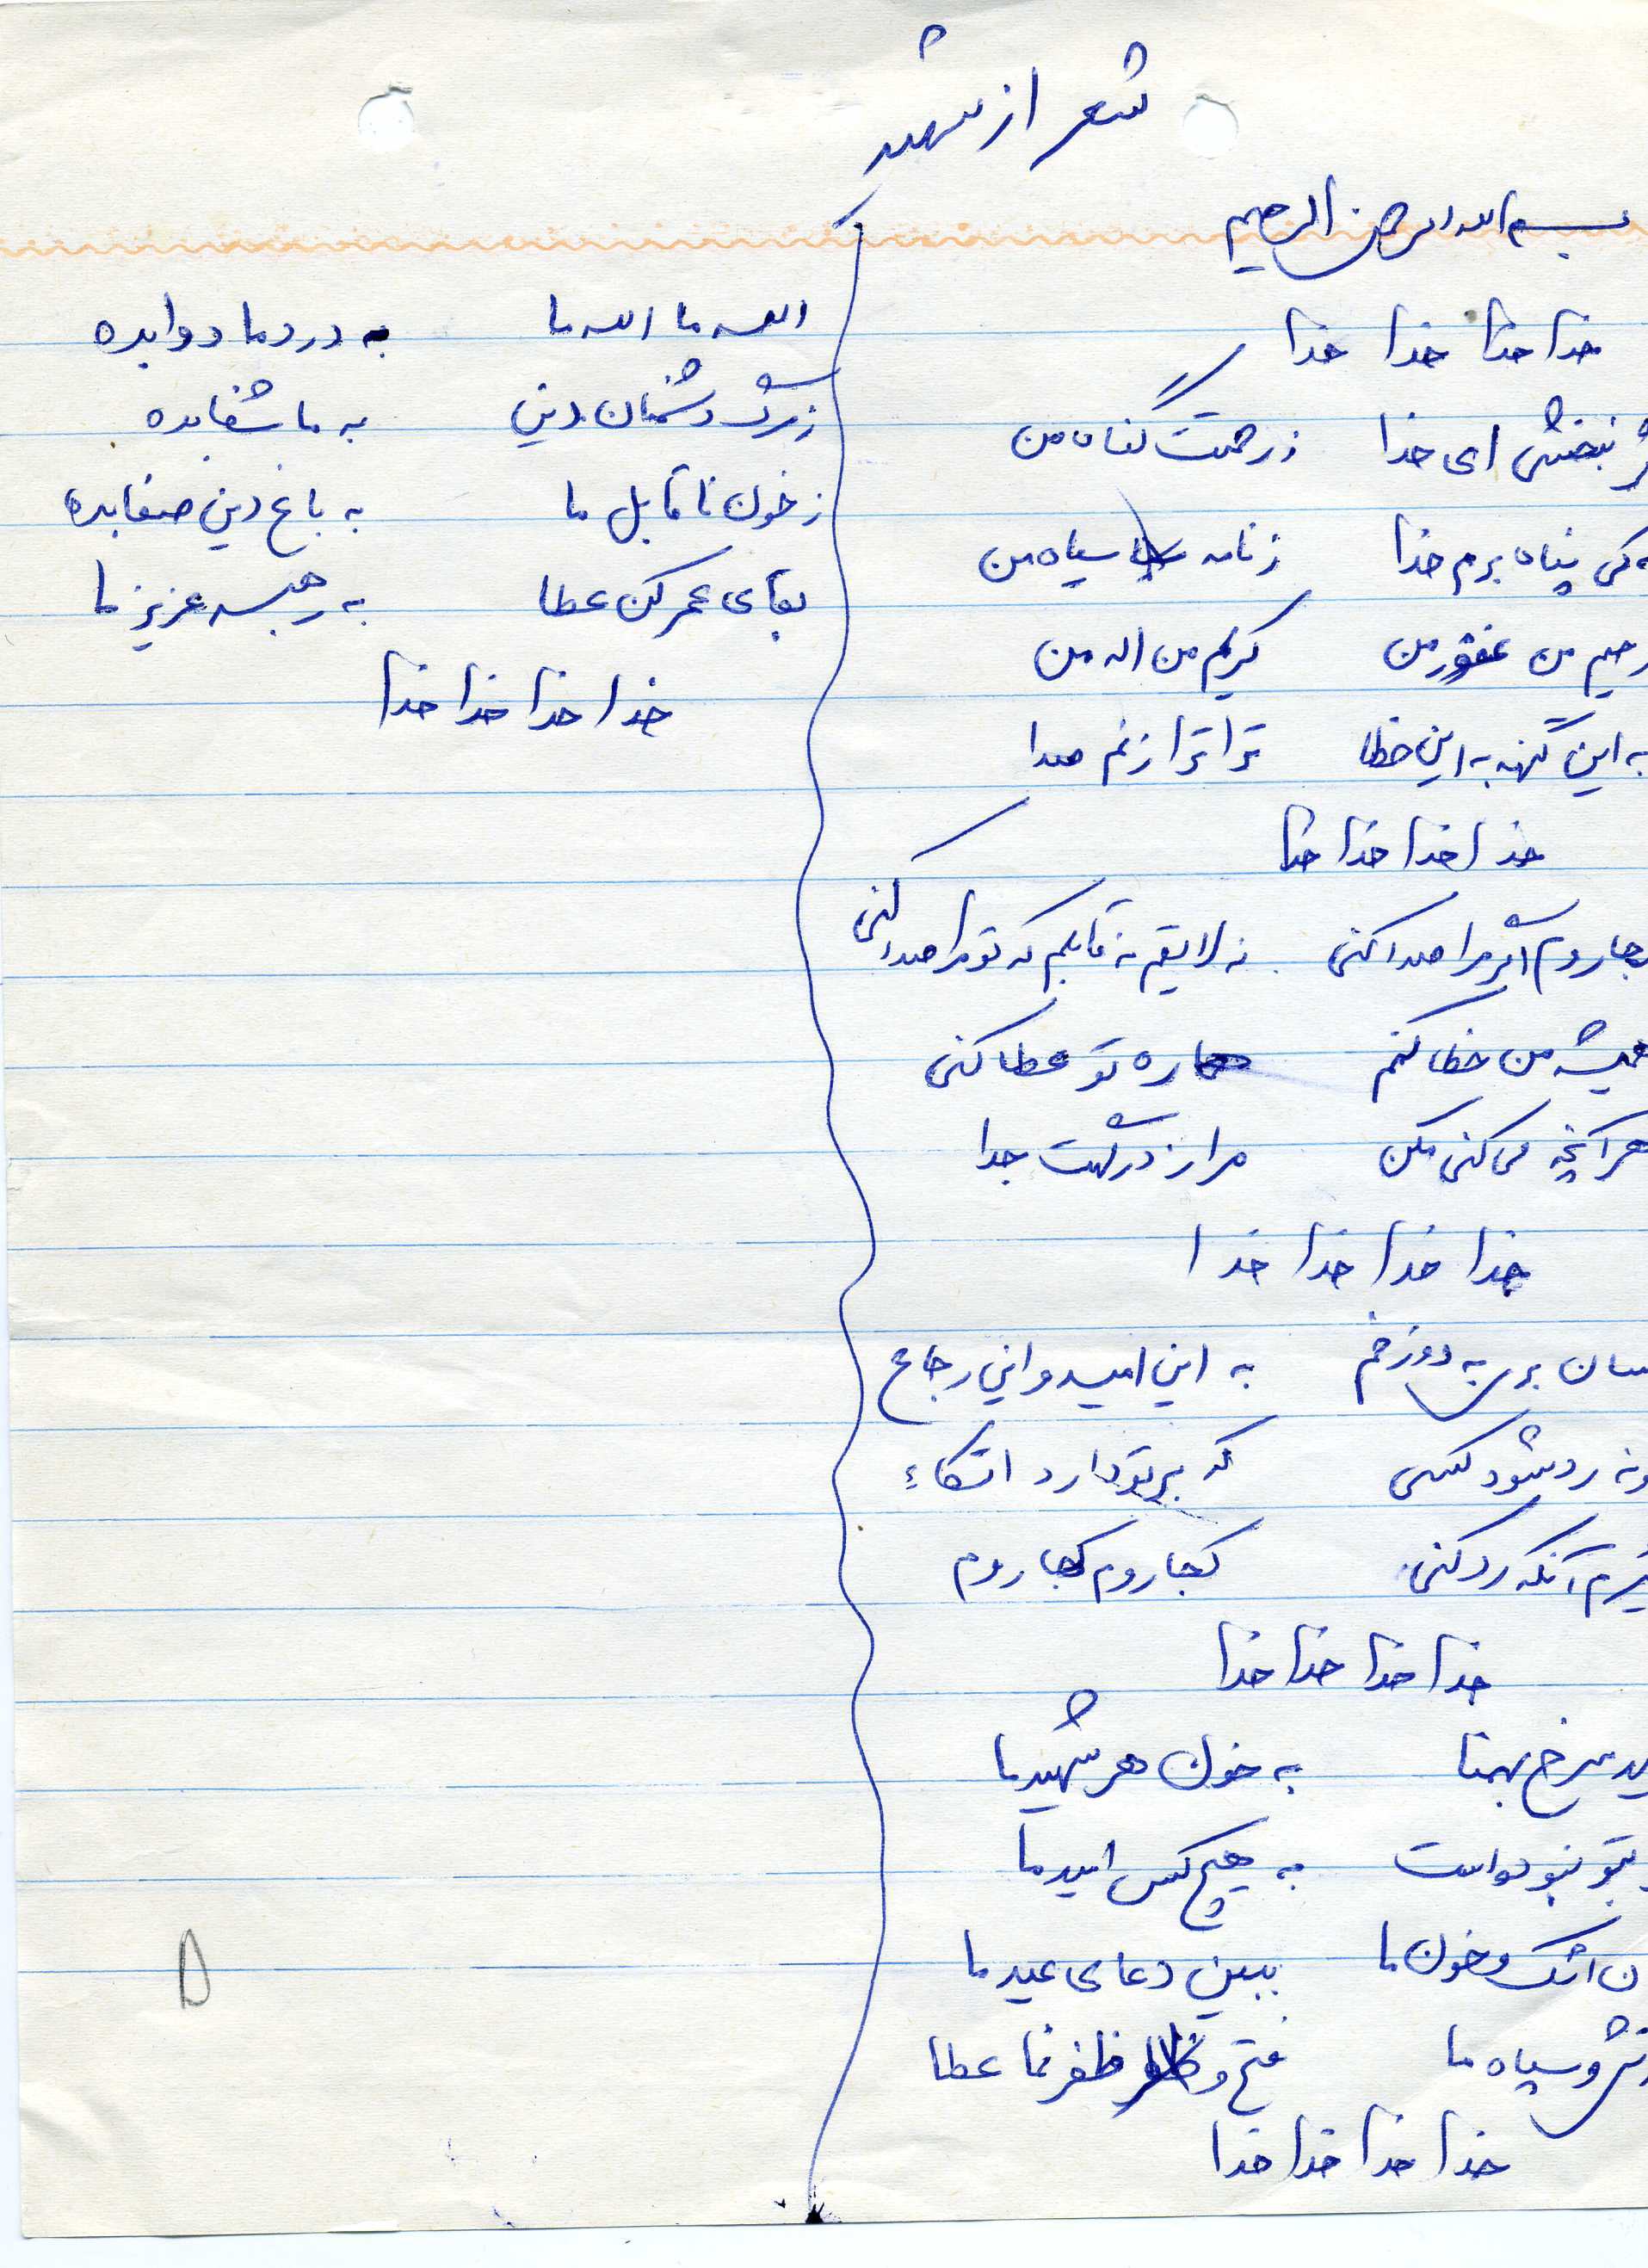 شعر از شهید
بسم الله الرحمن الرحیم
خدا خدا خدا خدا
ببخش ای خدا ز رحمت گناه من
پناه برم خدا ز نامه سیاه من
رحیم من غفور من کریم من اله من
به این گنه به این خطا ترا ترا زنم صدا
خدا خدا خدا خدا
روم اگر مرا صدا کنی نه لایقم نه قابلم که تو مرا صدا کنی
همیشه من خطا کنم هماره تو عطا کنی
هر آنچه می کنی مکن مرا ز درگهت جدا
خدا خدا خدا خدا
بری به دوزخم به این امید و این رجاع
رد شود کسی که بر تو دارد اتکاء
آنکه رد کنی کجا روم کجا روم
خدا خدا خدا خدا
سرخ به خون هر شهید ما
بتو نبود است به هیچ کس امید ما
اشک و خون ما ببین دعای عید ما
و سپاه ما فتح و ظفر نما عطا
خدا خدا خدا خدا
اله ما اله ما به درد ما دوا بده
ز مرگ دشمنان دین به ما شفا بده
ز خون نا قابل ما به باغ دین صفا بده
بقای عمر کن عطا به رهبر عزیز ما
خدا خدا خدا خدا
۵